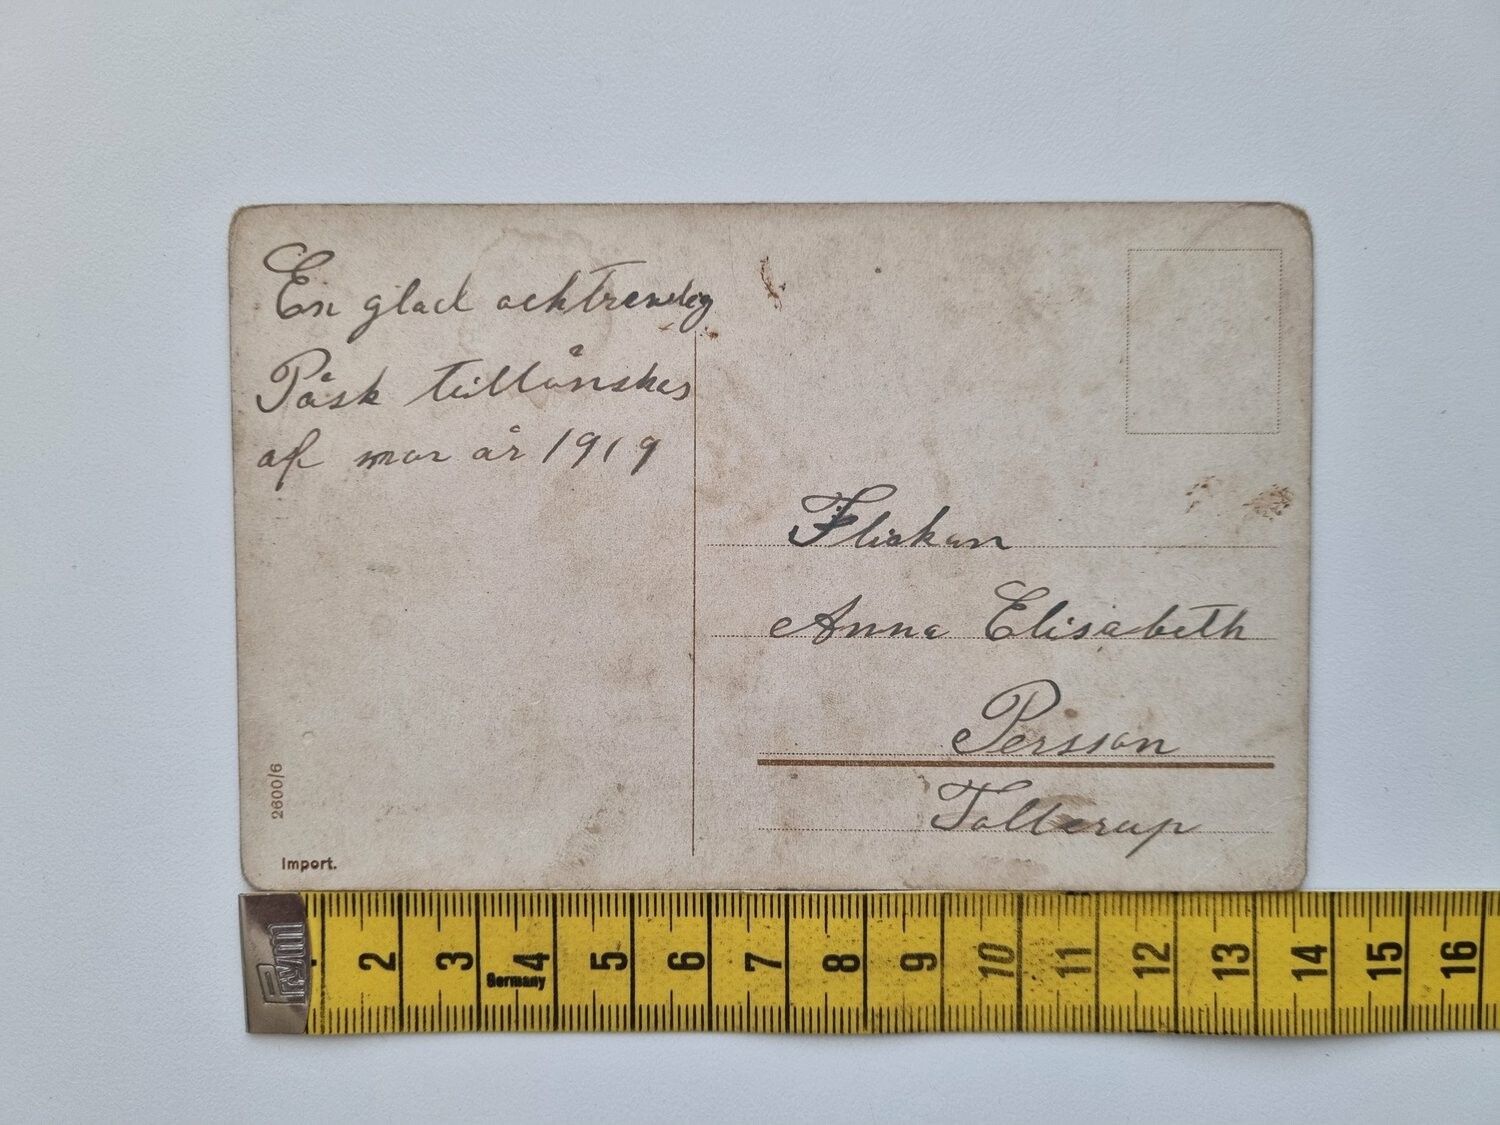 En glad ochtrevlig
Påsk tillönskas
af mor år 1919
Flickan
Anna Elisabeth
Persson
Tolterup
2600/6
Import.
prym
2 3 4 5 6 7 8 9 10 11 12 13 14 15 16
Germany